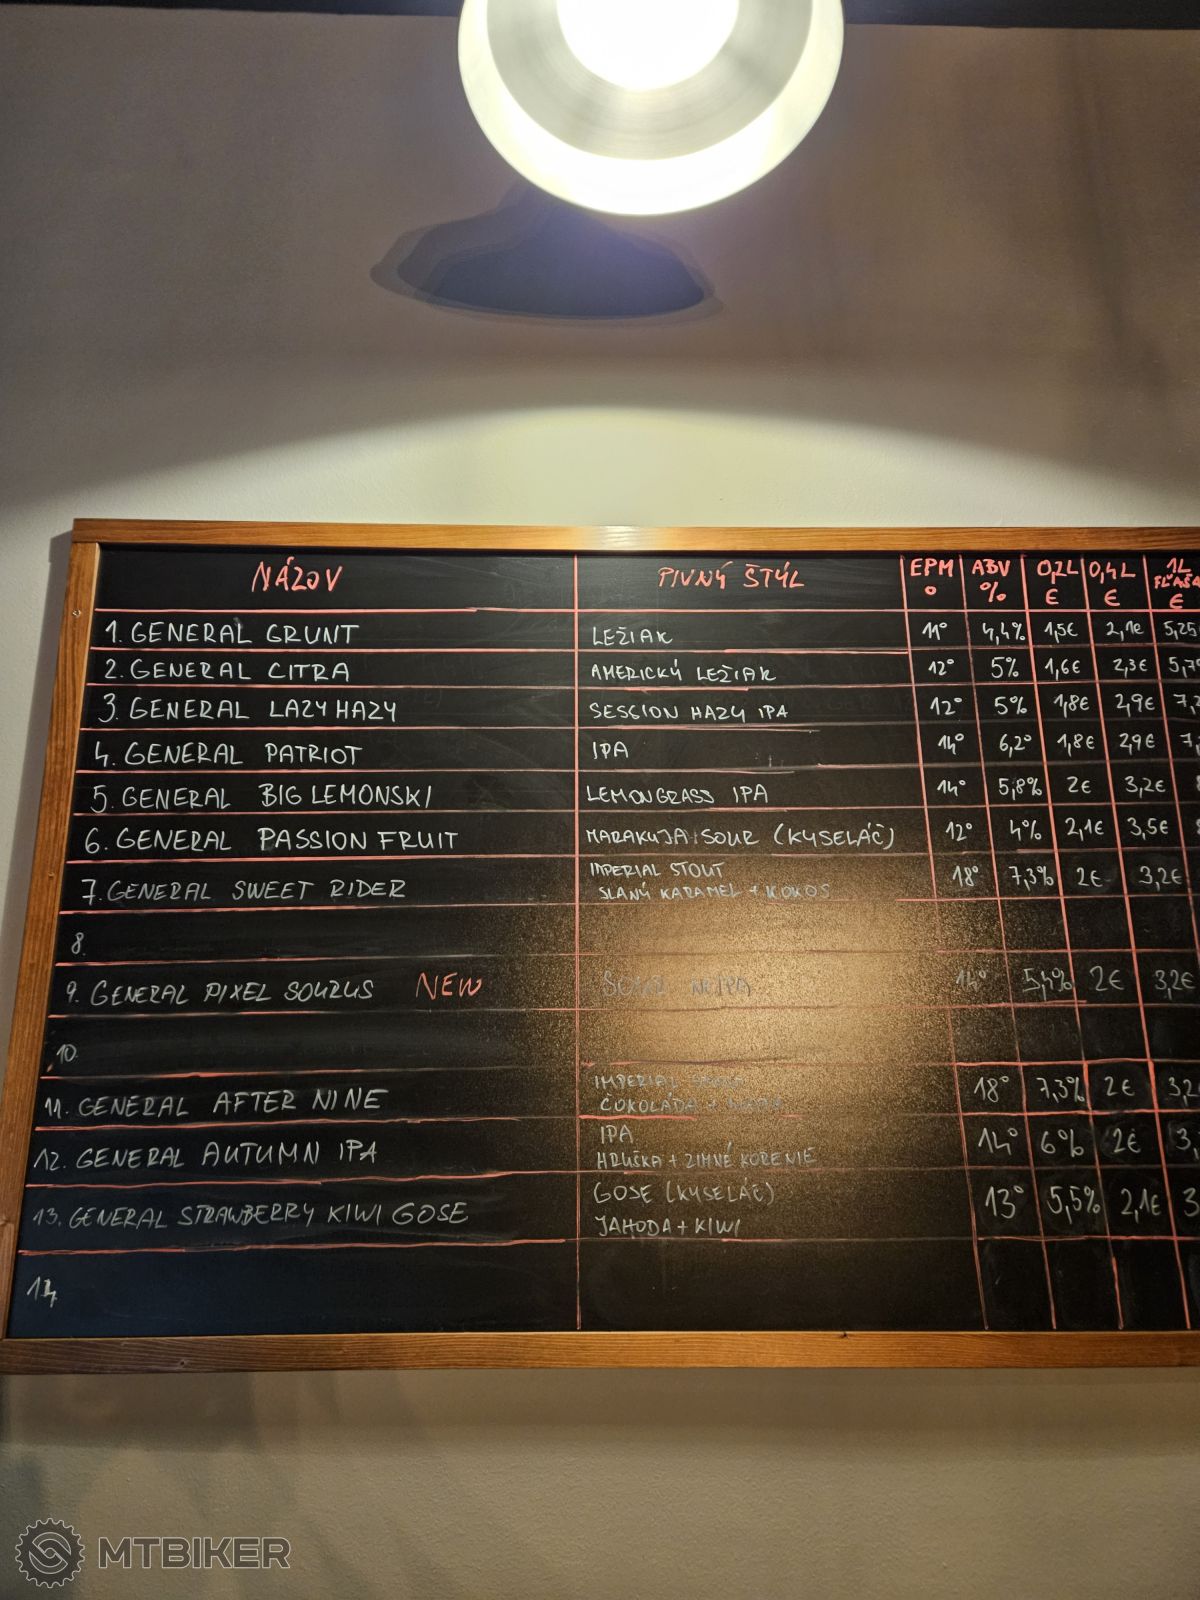 NÁZOV PIVNÝ ŠTÝL EPM ° ABV % 0,2L € 0,4L € 1L FĽAŠA €
1. GENERAL GRUNT LEŽIAK 11° 4,4% 1,5€ 2,1€ 5,25
2. GENERAL CITRA AMERICKÝ LEŽIAK 12° 5% 1,6€ 2,3€ 5,7
3. GENERAL LAZY HAZY SESSION HAZY IPA 12° 5% 1,8€ 2,9€ 7,2
4. GENERAL PATRIOT IPA 14° 6,2° 1,8€ 2,9€ 7,
5. GENERAL BIG LEMONSKI LEMONGRASS IPA 14° 5,8% 2€ 3,2€
6. GENERAL PASSION FRUIT MARAKUJA SOUR (KYSELÁČ) 12° 4% 2,1€ 3,5€
7. GENERAL SWEET RIDER IMPERIAL STOUT 18° 7,3% 2€ 3,2€
SLANÝ KARAMEL + KOKOS
8.
9. GENERAL PIXEL SOURUS NEW SOUR NEIPA 14° 5,4% 2€ 3,2€
10.
11. GENERAL AFTER NINE IMPERIAL 18° 7,3% 2€ 3,2
ČOKOLÁDA +
12. GENERAL AUTUMN IPA IPA 14° 6% 2€ 3,
HRUŠKA + ZIMNÉ KORENIE
13. GENERAL STRAWBERRY KIWI GOSE GOSE (KYSELÁČ) 13° 5,5% 2,1€ 3
JAHODA + KIWI
14.
MTBIKER